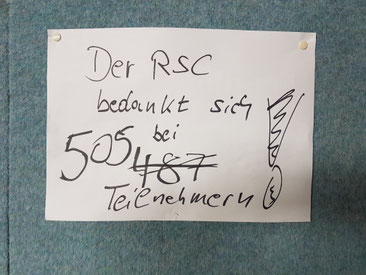 Der RSC
bedankt sich
bei
505 487
Teilnehmern !